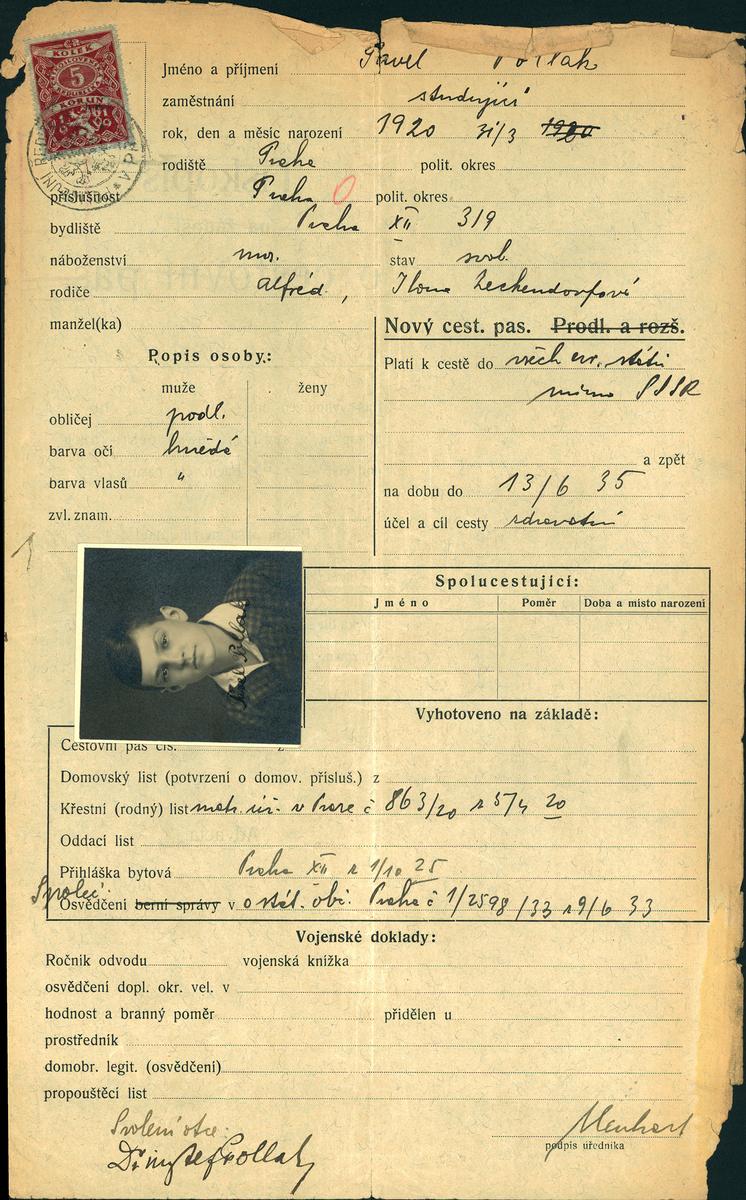 KOLEK
5
KORUN
Jméno a příjmení Pavel Pollak
zaměstnání studující
rok, den a měsíc narození 1920 31/3 1920
rodiště Praha polit. okres
příslušnost Praha 0 polit. okres
bydliště Praha XII 319
náboženství stav svob.
rodiče Alfréd, Ilona Zeckendorfová
manžel(ka)
Nový cest. pas. Prodl. a rozš.
Popis osoby:
Platí k cestě do všech evr. států
mimo SSSR
muže ženy
obličej podl.
barva očí hnědé
barva vlasů "
zvl. znam.
a zpět
na dobu do 13/6 35
účel a cíl cesty zdravotní
Spolucestující:
Jméno Poměr Doba a místo narození
Pavel Pollak
Vyhotoveno na základě:
Cestovní pas čís. z
Domovský list (potvrzení o domov. přísluš.) z
Křestní (rodný) list matr. úř. v Praze č 863/20 z 5/4 20
Oddací list
Přihláška bytová Praha XII z 1/10 25
Společ.
Osvědčení berní správy v o stát. obč. Praha č 1/2598/33 z 9/6 33
Vojenské doklady:
Ročník odvodu vojenská knížka
osvědčení dopl. okr. vel. v
hodnost a branný poměr přidělen u
prostředník
domobr. legit. (osvědčení)
propouštěcí list
Svolení otce:
Pollak
podpis úředníka